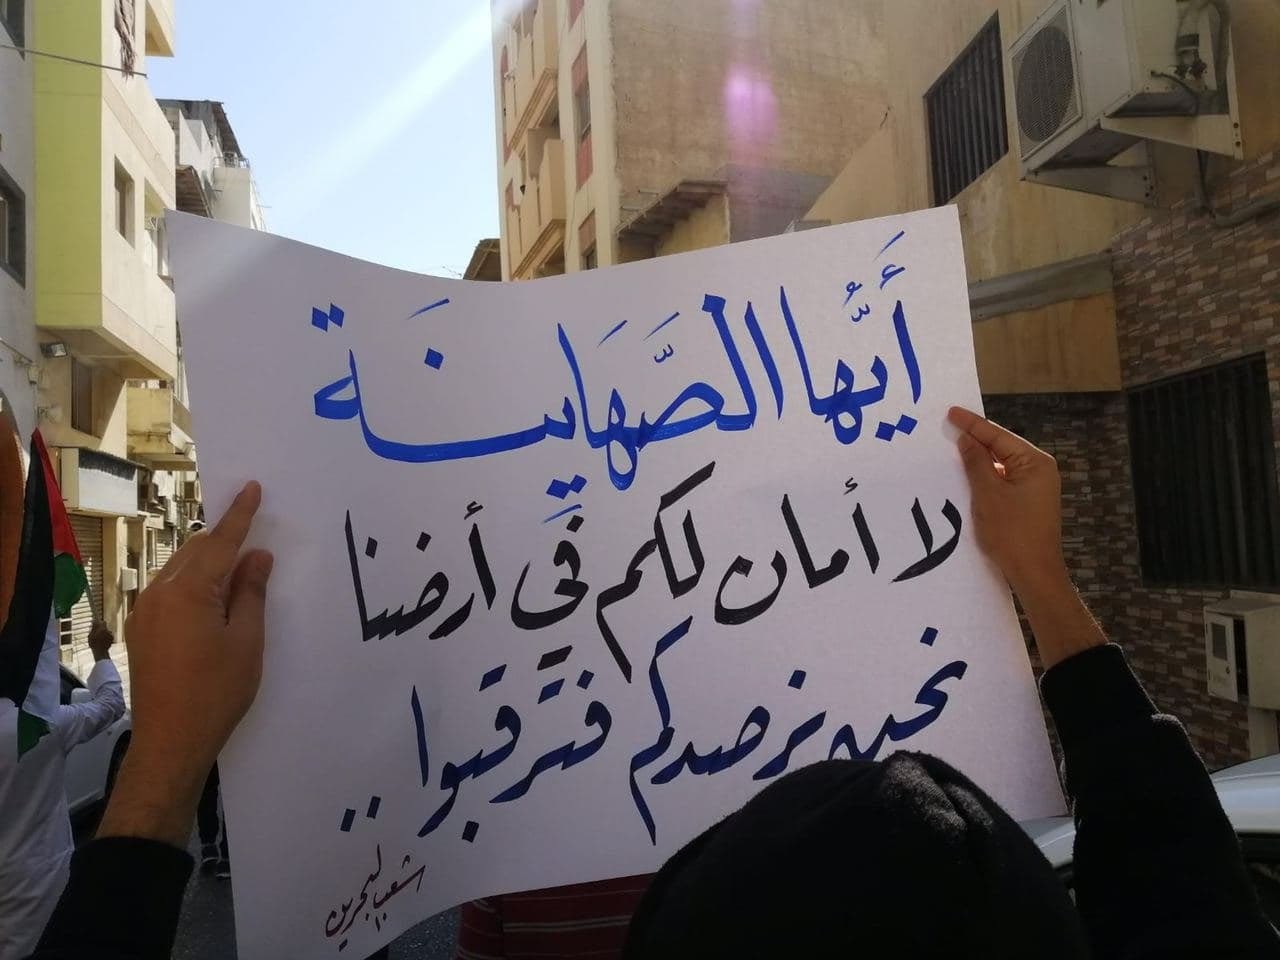 أَيُّها الصَّهَاينَة
لا أمان لكم فِي أرضنا
نحن نرصدكم فترقبوا..
شعب البحرين